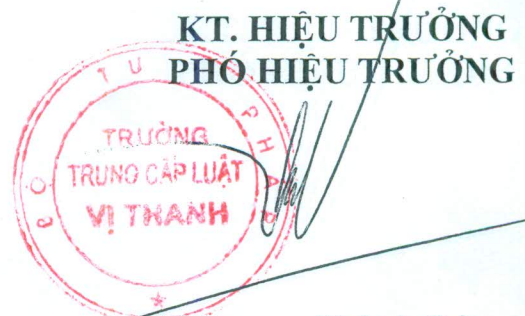 KT. HIỆU TRƯỞNG
PHÓ HIỆU TRƯỞNG
BỘ TƯ PHÁP
TRƯỜNG
TRUNG CẤP LUẬT
VỊ THANH